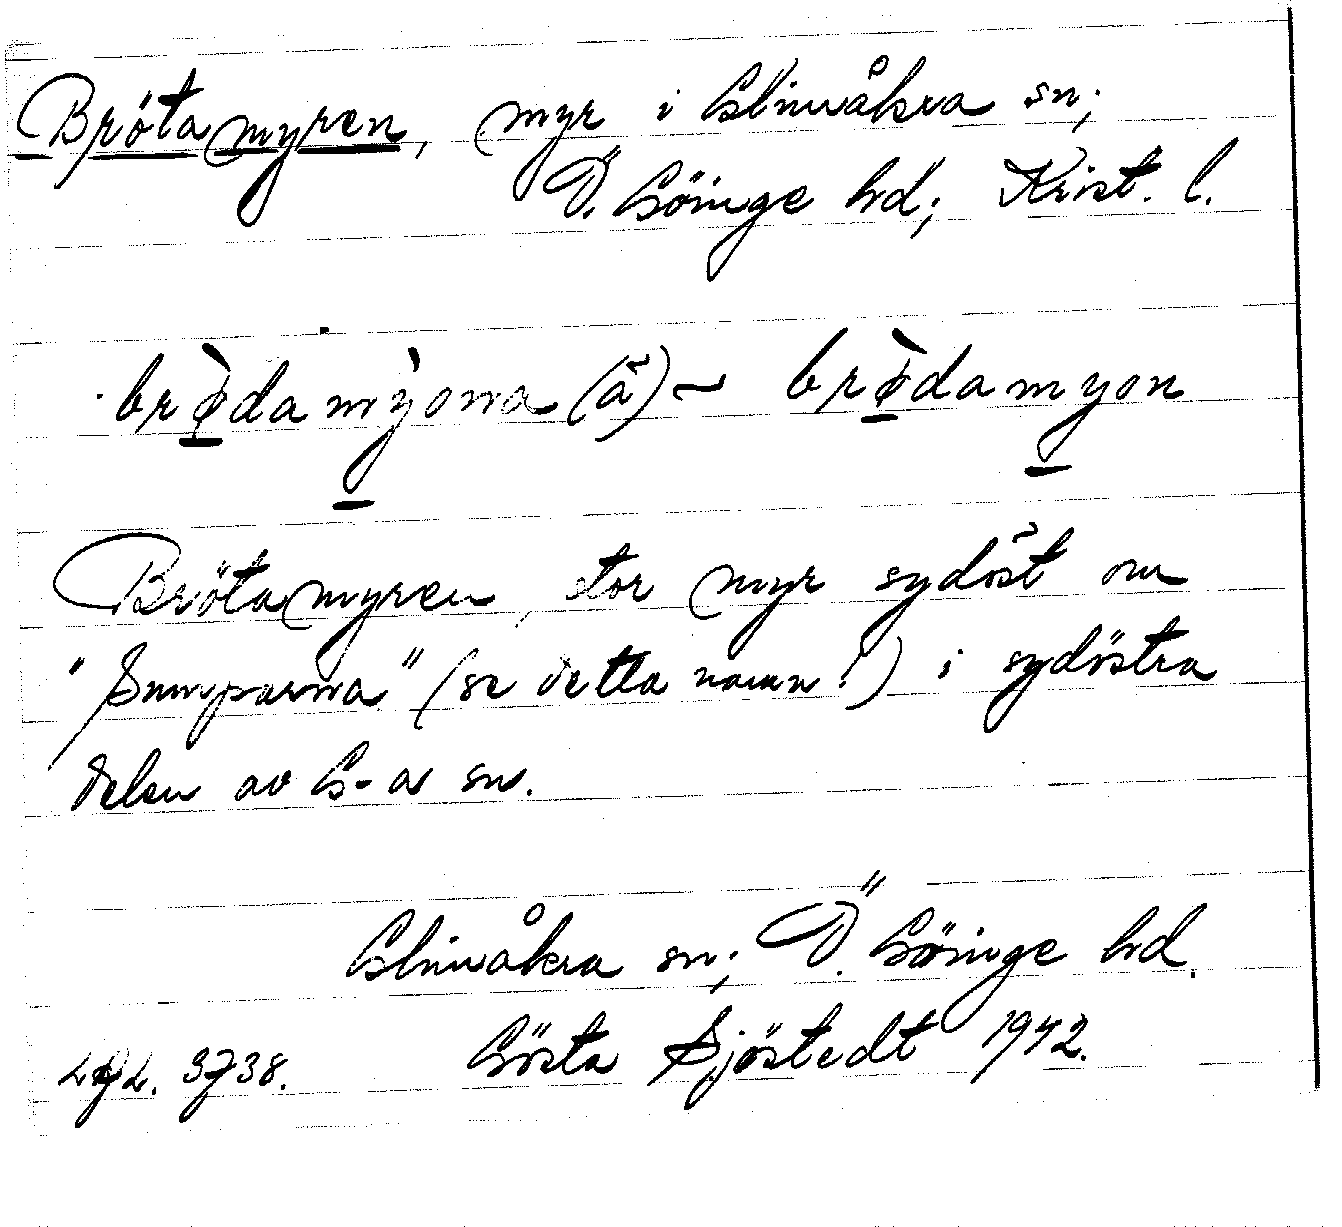 Brötamyren, myr i Glimåkra sn;
Ö. Göinge hd; Krist. l.
brø̀damỳonna (ã) ~ brø̀damyon
Brötamyren, stor myr sydöst om
"Sumparna" (se detta namn!) i sydöstra
delen av G-a sn.
Glimåkra sn; Ö. Göinge hd.
Gösta Sjöstedt 1942.
3738.